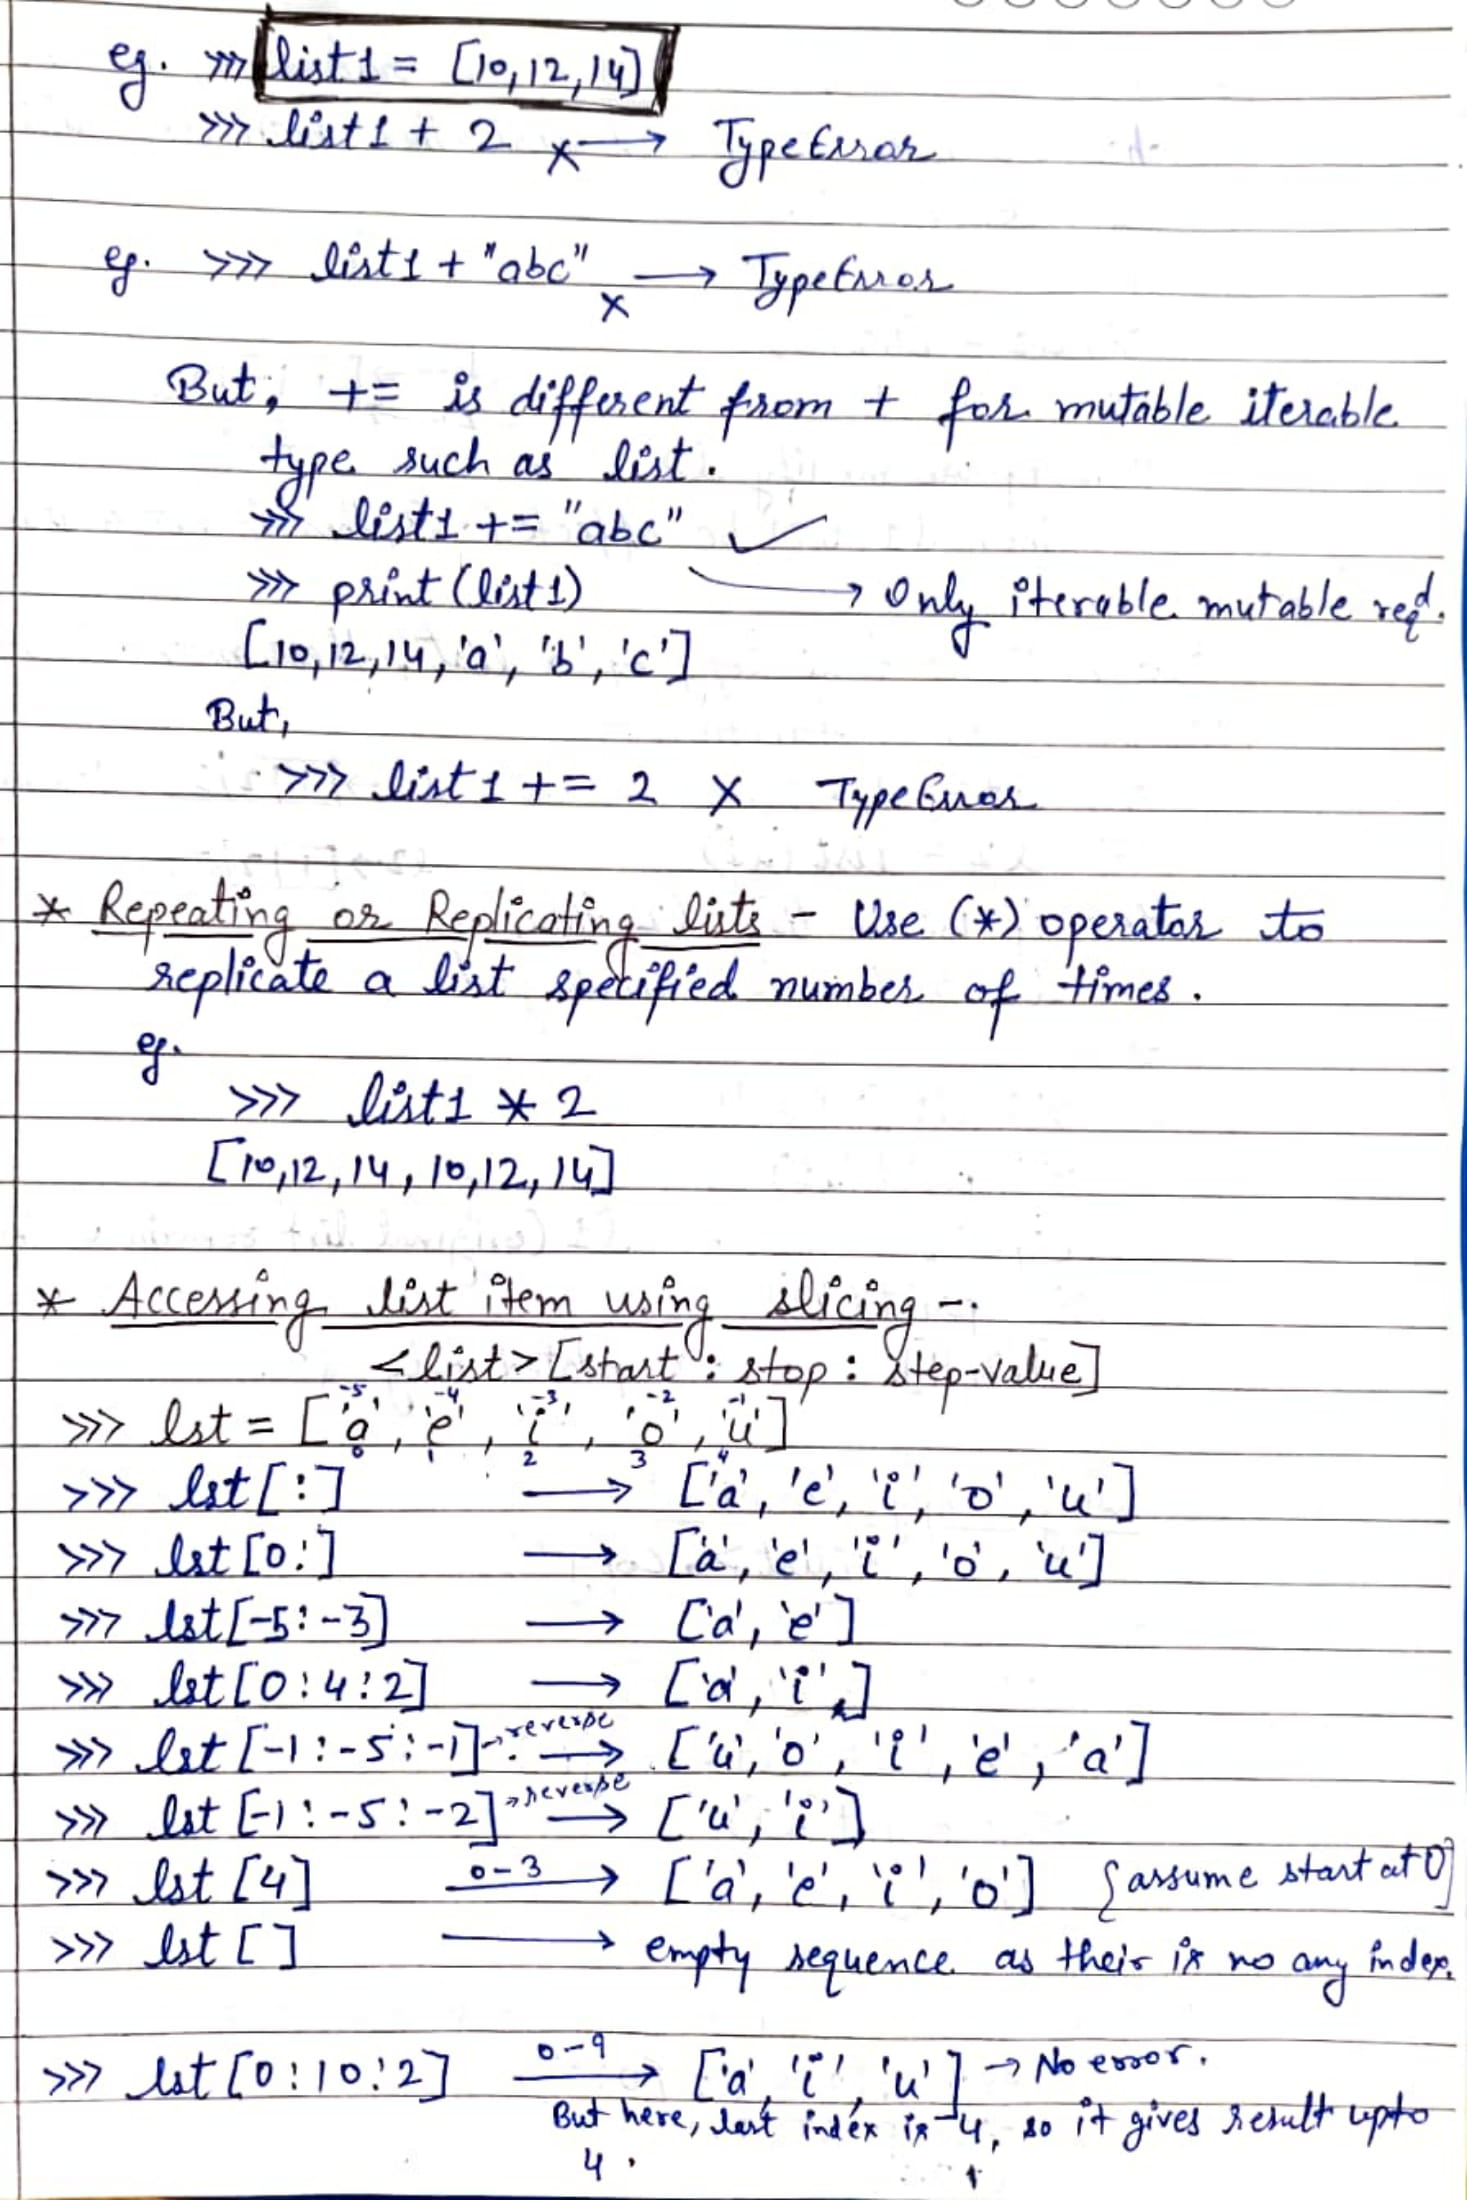 eg. >>> list1 = [10,12,14]
>>> list1 + 2 x → TypeError
eg. >>> list1 + "abc" x → TypeError
But, += is different from + for mutable iterable
type such as list.
>>> list1 += "abc" ✓
>>> print(list1) → Only iterable mutable reqd.
[10,12,14,'a','b','c']
But,
>>> list1 += 2 x TypeError
* Repeating or Replicating lists - Use (*) operator to
replicate a list specified number of times.
eg.
>>> list1 * 2
[10,12,14,10,12,14]
* Accessing list item using slicing -
<list>[start : stop : step-value]
-5 -4 -3 -2 -1
>>> lst = ['a', 'e', 'i', 'o', 'u']
0 1 2 3 4
>>> lst[:] → ['a', 'e', 'i', 'o', 'u']
>>> lst[0:] → ['a', 'e', 'i', 'o', 'u']
>>> lst[-5:-3] → ['a', 'e']
>>> lst[0:4:2] → ['a', 'i',]
>>> lst[-1:-5:-1] → reverse → ['u', 'o', 'i', 'e', 'a']
>>> lst[-1:-5:-2] → reverse → ['u', 'i']
>>> lst[4] 0-3 → ['a', 'e', 'i', 'o'] {assume start at 0]
>>> lst[] → empty sequence as their is no any index.
>>> lst[0:10:2] 0-9 → ['a', 'i', 'u'] → No error.
But here, last index is 4, so it gives result upto
4.